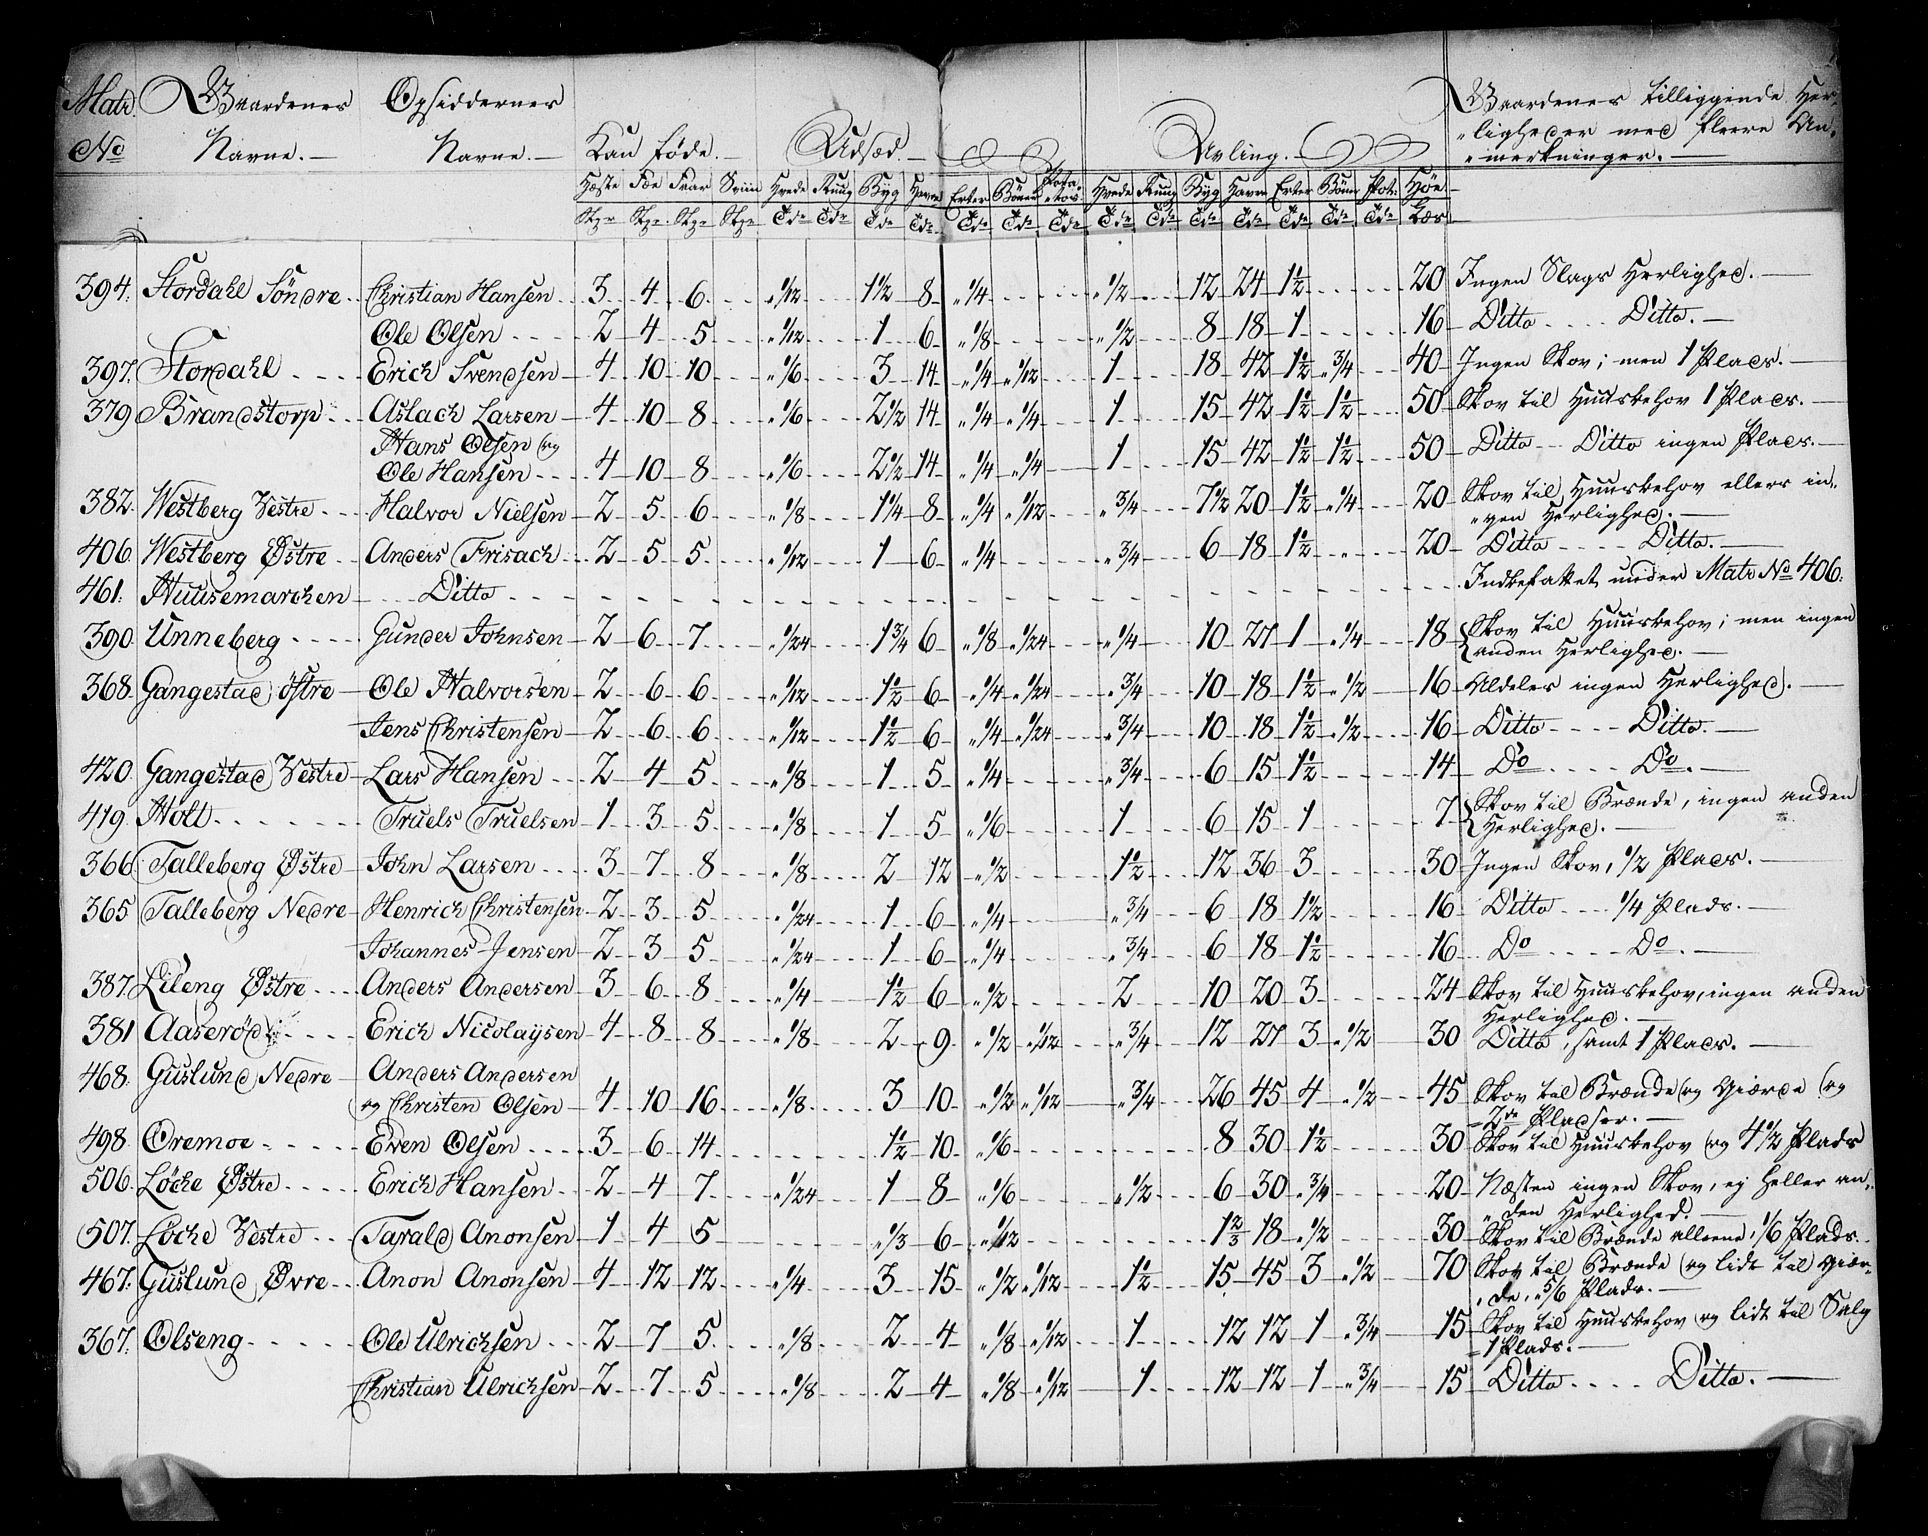 Matr Gaardenes Opsiddernes Gaardenes tilliggende Her-
No Navne. Navne. Kan føde. Udsæd. Avling. ligheder med fleere An-
merkninger.
Heste Fæe Faar Sviin Hvede Ruug Byg Havre Erter Bönner Pota-tos Hvede Ruug Byg Havre Erter Bönner Pot: Höe
Stkr Stkr Stkr Stkr Tdr Tdr Tdr Tdr Tdr Tdr Tdr Tdr Tdr Tdr Tdr Tdr Tdr Tdr Læs
394. Stordahl Söndre Christian Hansen 3 4 6 " 1/12 1 1/2 8 " 1/4 " 1/2 12 24 1 1/2 20 Ingen Slags Herlighed.
Ole Olsen 2 4 5 " 1/12 1 6 " 1/8 " 1/2 8 18 1 16 Ditto Ditto.
397. Stordahl Erich Svendsen 4 10 10 " 1/6 3 14 " 1/4 " 1/12 1 18 42 1 1/2 " 3/4 40 Ingen Skov; men 1 Plads.
379 Brandstorp Aslach Larsen 4 10 8 " 1/6 2 1/2 14 " 1/4 " 1/4 1 15 42 1 1/2 1 1/2 50 Skov til Huusbehov 1 Plads.
Hans Olsen og
Ole Hansen 4 10 8 " 1/6 2 1/2 14 " 1/4 " 1/4 1 15 42 1 1/2 1 1/2 50 Ditto Ditto ingen Plads.
382. Westberg Vestre Halvor Nielsen 2 5 6 " 1/8 1 1/4 8 " 1/4 " 1/12 " 3/4 7 1/2 20 1 1/2 " 1/4 20 Skov til Huusbehov ellers in-
gen Herlighed.
406. Westberg Østre Anders Frisach 2 5 5 " 1/12 1 6 " 1/4 " 3/4 6 18 1 1/2 " 20 Ditto Ditto.
461. Huusemarchen Ditto Indbefattet under Matr No 406.
390. Unneberg Gunder Johnsen 2 6 7 " 1/24 1 3/4 6 " 1/8 " 1/24 " 1/4 10 27 1 " 1/4 18 Skov til Huusbehov; men ingen
anden Herlighed.
368. Gangestad Østre Ole Halvorsen 2 6 6 " 1/12 1 1/2 6 " 1/4 " 1/24 " 3/4 10 18 1 1/2 " 1/2 16 Aldeles ingen Herlighed.
Jens Christensen 2 6 6 " 1/12 1 1/2 6 " 1/4 " 1/24 " 3/4 10 18 1 1/2 " 1/2 16 Ditto Ditto.
420. Gangestad Vestre Lars Hansen 2 4 5 " 1/8 1 5 " 1/4 " 3/4 6 15 1 1/2 14 Do Do.
419. Holt Truels Truelsen 1 3 5 " 1/8 1 5 " 1/6 1 6 15 1 7 Skov til Brænde, ingen anden
Herlighed.
366. Talleberg Østre John Larsen 3 7 8 " 1/8 2 12 " 1/2 1 1/2 12 36 3 30 Ingen Skov, 1/2 Plads.
365 Talleberg Nedre Henrich Christensen 2 3 5 " 1/24 1 6 " 1/4 " 3/4 6 18 1 1/2 16 Ditto 1/4 Plads.
Johannes Jensen 2 3 5 " 1/24 1 6 " 1/4 " 3/4 6 18 1 1/2 16 Do Do.
387. Lileng Østre Anders Andersen 3 6 8 " 1/4 1 1/2 6 " 1/2 2 10 20 3 24 Skov til Huusbehov, ingen anden
Herlighed.
381 Aaseröd Erich Nicolaysen 4 8 8 " 1/8 2 9 " 1/2 " 1/12 " 3/4 12 27 3 " 1/2 30 Ditto, samt 1 Plads.
468. Guslund Nedre Anders Andersen
og Christen Olsen 4 10 16 " 1/8 3 10 " 1/2 " 1/12 " 3/4 26 45 4 " 1/2 45 Skov til Brænde og Gjærde og
2de Pladser.
498. Oremoe Even Olsen 3 6 14 1 1/2 10 " 1/6 8 30 1 1/2 30 Skov til Huusbehov og 4 1/2 Plads
506. Løche Østre Erich Hansen 2 4 7 " 1/24 1 8 " 1/6 " 1/2 6 30 " 3/4 20 Næsten ingen Skov, ej heller an-
den Herlighed.
507. Løche Vestre Tarald Anonsen 1 4 5 " 1/3 6 " 1/12 1 2/3 18 " 1/2 30 Skov til Brænde alleene, 1/6 Plads.
467. Guslund Øvre Anon Anonsen 4 12 12 " 1/4 3 15 " 1/2 " 1/12 1 1/2 15 45 3 " 1/2 70 Skov til Brænde og lidt til Gjær-
de, " 5/6 Plads.
367. Olseng Ole Ulrichsen 2 7 5 " 1/8 2 4 " 1/8 " 1/12 1 12 12 1 " 3/4 15 Skov til Huusbehov og lidt til Salg
1 Plads.
Christian Ulrichsen 2 7 5 " 1/8 2 4 " 1/8 " 1/12 1 12 12 1 " 3/4 15 Ditto Ditto.